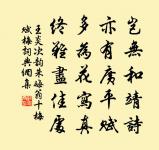 豈無和靖詩
亦有廣平賦
多為花寫真
終難盡佳處
王炎次韵朱晦翁十梅
賦梅詞典網集